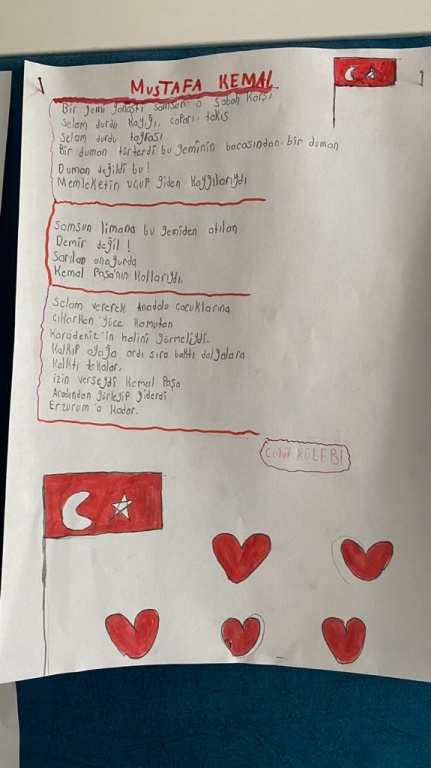 MUSTAFA KEMAL
Bir gemi yanaştı Samsun'a sabah karşı
Selam durdu kayığı, çaparı, takası
Selam durdu tayfası.
Bir duman tüterdi bu geminin bacasından, bir duman
Duman değildi bu!
Memleketin uçup giden kaygılarıydı
Samsun limana bu gemiden atılan
Demir değil!
Sarılan anayurda
Kemal Paşa'nın kollarıydı.
Selam vererek Anadolu çocuklarına
Çıkarken yüce komutan
Karadeniz'in halini görmeliydi.
Kalkıp ayağa ardı sıra baktı dalgalara
Kalktı takalar,
izin verseydi Kemal Paşa
Ardından gürleyip giderdi
Erzurum'a kadar.
Cahit KÜLEBİ